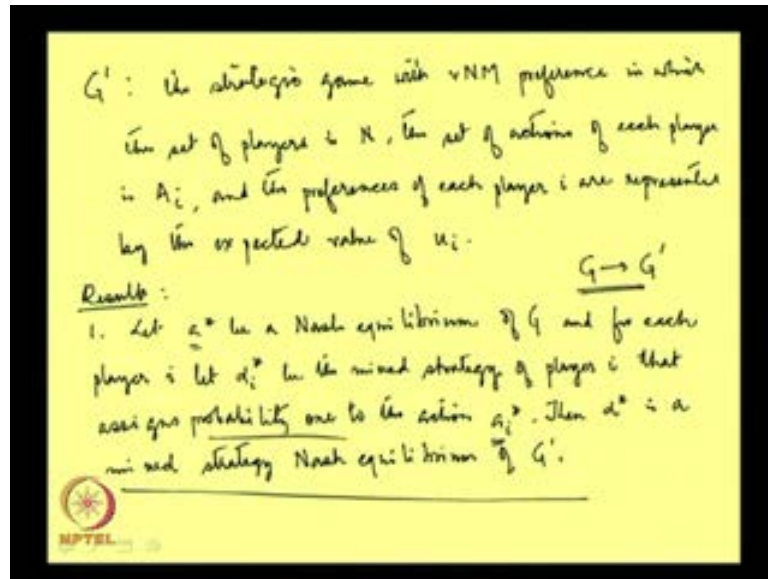 G' : the strategic game with vNM preference in which
the set of players is N, the set of actions of each player
is A_i, and the preferences of each player i are represented
by the expected value of u_i.
G → G'
Result :
1. Let a* be a Nash equilibrium of G and for each
player i let α_i* be the mixed strategy of player i that
assigns probability one to the action a_i*. Then α* is a
mixed strategy Nash equilibrium of G'.
NPTEL